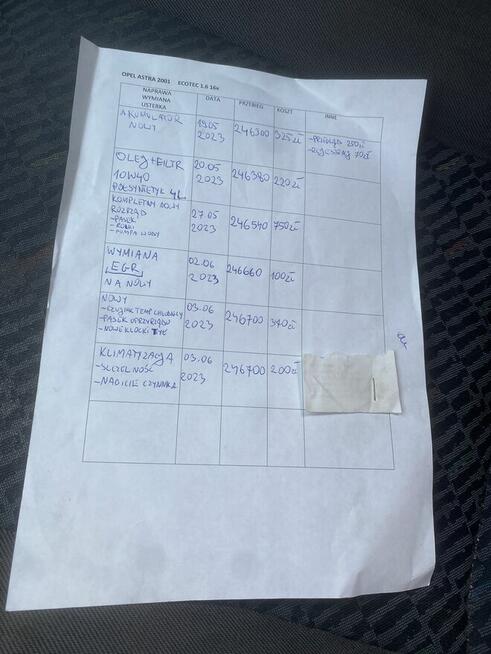 OPEL ASTRA 2001 ECOTEC 1.6 16v
NAPRAWA WYMIANA USTERKA DATA PRZEBIEG KOSZT INNE
AKUMULATOR NOWY 19.05 2023 246300 325zł -PRZEGLĄD 250zł
70zł
OLEJ+FILTR 10W40 PÓŁSYNTETYK 4L 20.05 2023 246380 220zł
KOMPLETNY NOWY ROZRZĄD
-PASEK
-ROLKI
-POMPA WODY
27.05 2023 246540 750zł
WYMIANA EGR NA NOWY 02.06 2023 246660 100zł
NOWY
-CZUJNIK TEMP CHŁODNICY
-PASEK OPRZYRZĄDU
-NOWE KLOCKI TYŁ
03.06 2023 246700 340zł
KLIMATYZACJA
-SZCZELNOŚĆ
-NABICIE CZYNNIKA
03.06 2023 246700 200zł